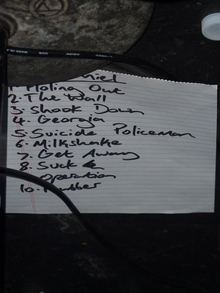 1. Moling Out
2. The Wall
3. Shook Down
4. Georgia
5. Suicide Policeman
6. Milkshake
7. Get Away
8. Suck
9. Operation
10. Rubber